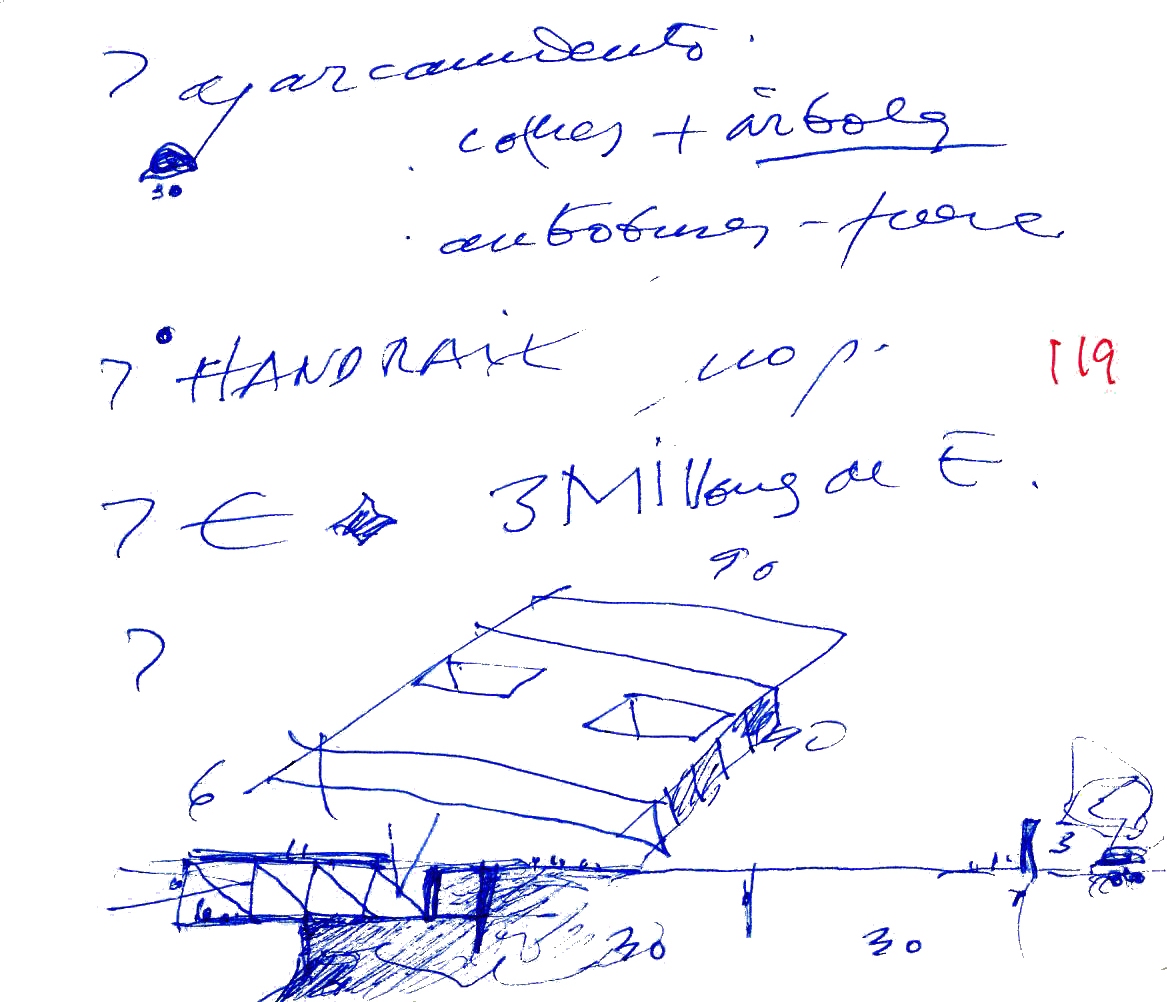 ? aparcamiento.
· coches + árboles
30
· autobuses - fuera
? HANDRAIL no p.
119
? € 3 Millones de E.
90
?
40
6
3
30 30